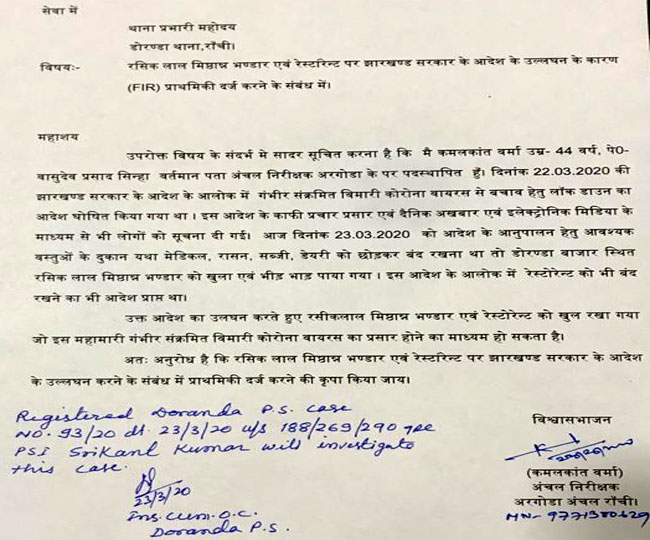 सेवा में
थाना प्रभारी महोदय
डोरण्डा थाना,राँची।
विषयः- रसिक लाल मिष्ठान्न भण्डार एवं रेस्टोरेन्ट पर झारखण्ड सरकार के आदेश के उल्लघन के कारण
(FIR) प्राथमिकी दर्ज करने के संबंध में।
महाशय
उपरोक्त विषय के संदर्भ मे सादर सूचित करना है कि मै कमलकांत वर्मा उम्र- 44 वर्ष, पे०-
वासुदेव प्रसाद सिन्हा वर्तमान पता अंचल निरीक्षक अरगोडा के पर पदस्थापित हूँ। दिनांक 22.03.2020 की
झारखण्ड सरकार के आदेश के आलोक में गंभीर संक्रमित विमारी कोरोना वायरस से बचाव हेतु लॉक डाउन का
आदेश घोषित किया गया था। इस आदेश के काफी प्रचार प्रसार एवं दैनिक अखबार एवं इलेक्ट्रोनिक मिडिया के
माध्यम से भी लोगों को सूचना दी गई। आज दिनांक 23.03.2020 को आदेश के आनुपालन हेतु आवश्यक
वस्तुओं के दुकान यथा मेडिकल, रासन, सब्जी, डेयरी को छोड़कर बंद रखना था तो डोरण्डा बाजार स्थित
रसिक लाल मिष्ठान्न भण्डार को खुला एवं भीड़ भाड़ पाया गया। इस आदेश के आलोक में रेस्टोरेन्ट को भी बंद
रखने का भी आदेश प्राप्त था।
उक्त आदेश का उलघन करते हुए रसीकलाल मिष्ठान्न भण्डार एवं रेस्टोरेन्ट को खुल रखा गया
जो इस महामारी गंभीर संक्रमित विमारी कोरोना वायरस का प्रसार होने का माध्यम हो सकता है।
अतः अनुरोध है कि रसिक लाल मिष्ठान्न भण्डार एवं रेस्टोरेन्ट पर झारखण्ड सरकार के आदेश
के उल्लघन करने के संबंध में प्राथमिकी दर्ज करने की कृपा किया जाय।
Registered Doranda P.S. case
NO. 93/20 dt. 23/3/20 u/s 188/269/290 IPC
PSI Srikant Kumar will investigate
this case.
23/3/20
Ins. cum. O.C.
Doranda P.S.
विश्वासभाजन
(कमलकांत वर्मा)
अंचल निरीक्षक
अरगोडा अंचल राँची।